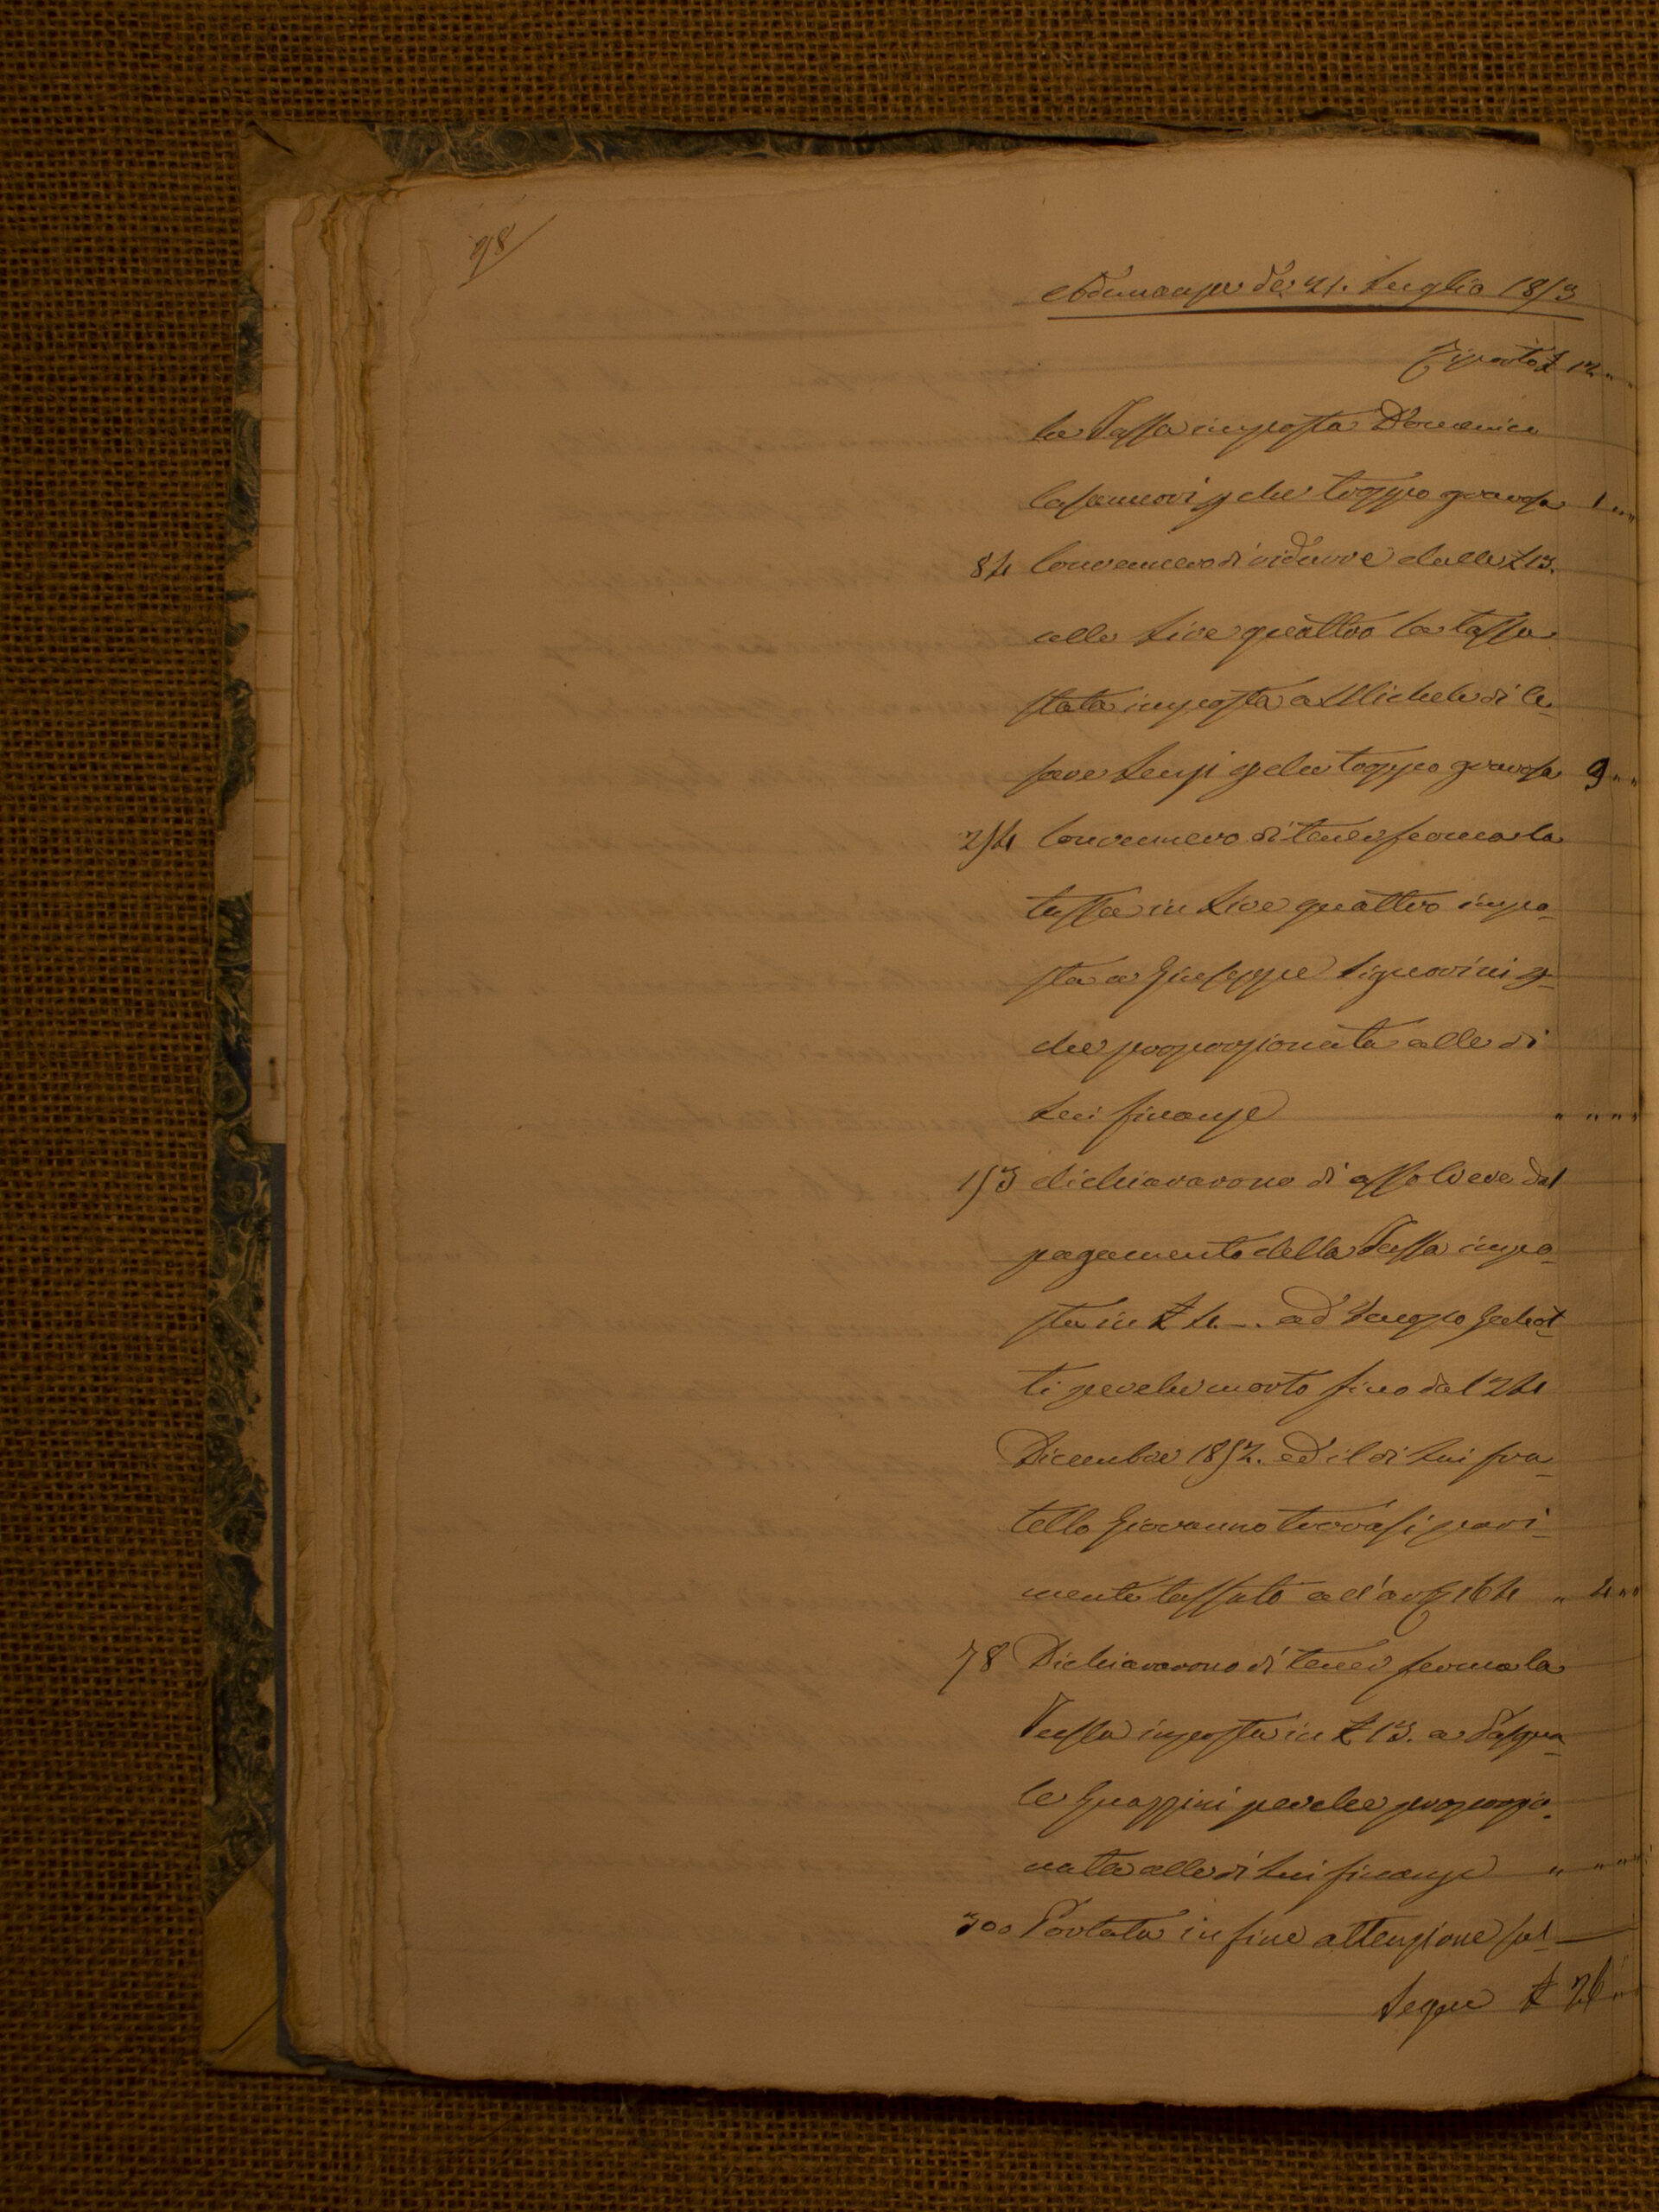 98
Adunanza de' 21. Luglio 1853
Riporto £ 12 " "
la Tassa imposta Domenico
Casanuovi p che troppo gravosa 1 " "
84 Convennero di ridurre dalle £ 13.
alle Lire quattro la tassa
stata imposta a Michele di Ce_
sare Lenzi p che troppo gravosa 9 " "
254 Convennero di tener ferma la
tassa in Lire quattro impo_
sta a Giuseppe Signorini p_
che proporzionata alle di
Lui finanze " " " "
153 dichiararono di assolvere dal
pagamento della Tassa impo_
sta in £ 4. _. ad
ti perche morto fino dal 24
Dicembre 1852. ed il di Lui fra_
tello Giovanno trovasi pari_
mente tassato all'art 164 " 4 " "
78 Dichiararono di tener ferma la
Tassa imposta in £ 13. a Pasqua_
le Guazzini perche proporzio_
nata alle di Lui finanze " " " "
300 Portata in fine attenzione sul
Segue £ 26 " "